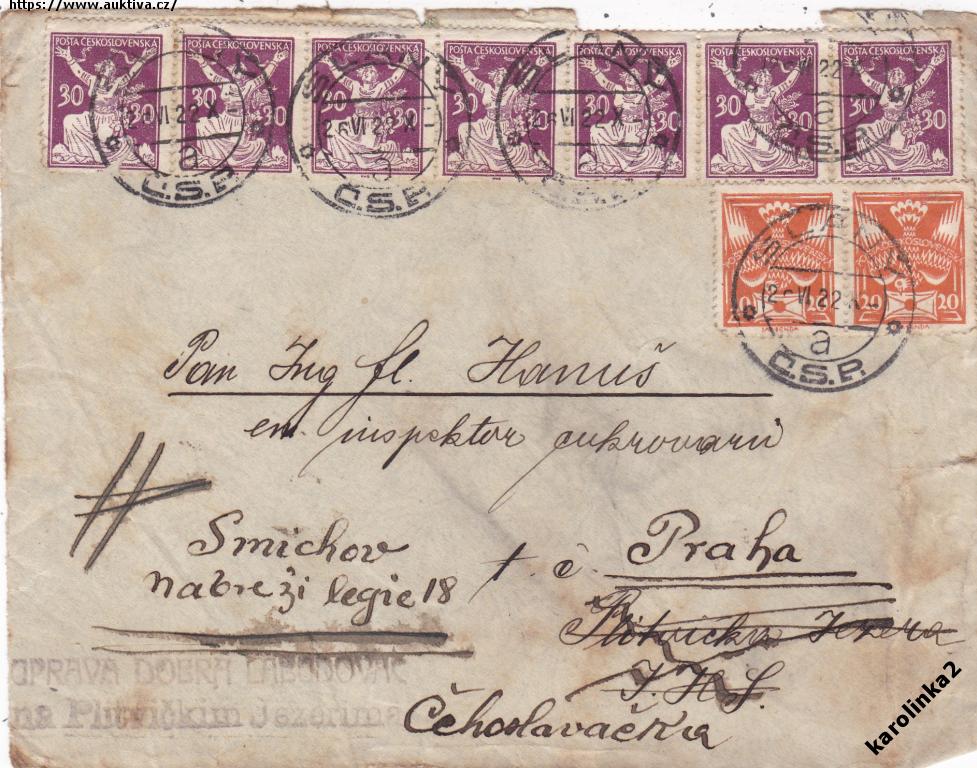 https://www.auktiva.cz/
POŠTA ČESKOSLOVENSKÁ POŠTA ČESKOSLOVENSKÁ POŠTA ČESKOSLOVENSKÁ POŠTA ČESKOSLOVENSKÁ POŠTA ČESKOSLOVENSKÁ POŠTA ČESKOSLOVENSKÁ POŠTA ČESKOSLOVENSKÁ
30 30 30 30 30 30 30 30 30 30 30 30
SLANÝ
26 VI 22 X
a
Č.S.P.
20 20
SLANÝ
26 VI 22 X
a
Č.S.P.
Pan Ing fl. Hanuš
em. inspektor cukrovarů
Smichov
nabreži legie 18
t. č. Praha
Plitvička Jezera
Čehoslavačka
UPRAVA DOBRA
na Plitvičkim Jezerima
karolinka2